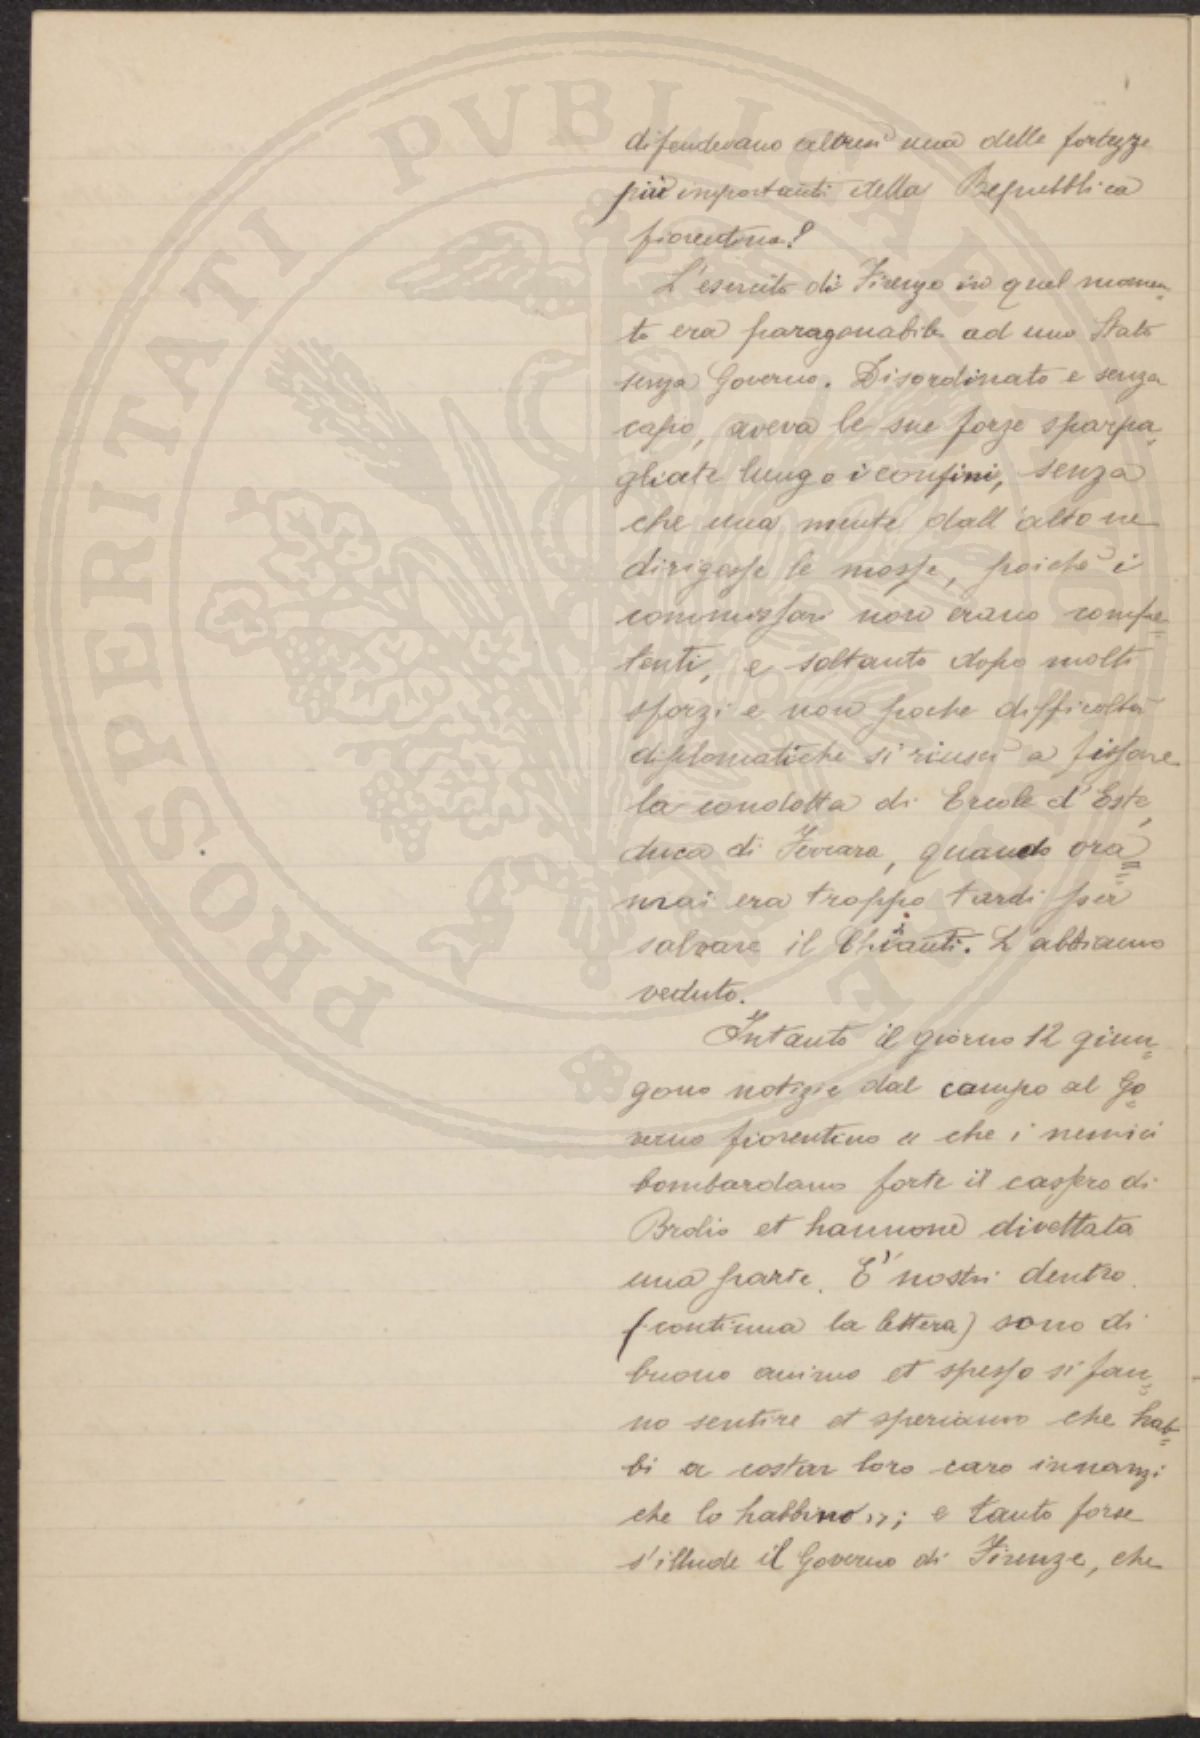 difendevano altresì una delle fortezze
più importanti della Repubblica
fiorentina?
L'esercito di Firenze in quel momen=
to era paragonabile ad uno Stato
senza Governo. Disordinato e senza
capo, aveva le sue forze sparpa=
gliate lungo i confini, senza
che una mente dall'alto ne
dirigesse le mosse, poichè i
commissari non erano compe=
tenti, e soltanto dopo molti
sforzi e non poche difficoltà
diplomatiche si riuscì a fissare
la condotta di Ercole d'Este,
duca di Ferrara, quando ora=
mai era troppo tardi per
salvare il Chianti. L'abbiamo
veduto.
Intanto il giorno 12 giun=
gono notizie dal campo al Go=
verno fiorentino « che i nemici
bombardano forte il cassero di
Brolio et hannone divettata
una parte. E' nostri dentro
(continua la lettera) sono di
buono animo et spesso si fan=
no sentire et speriamo che hab=
bi a costar loro caro innanzi
che lo habbino »; e tanto forse
s'illude il Governo di Firenze, che
PROSPERITATI PVBLICAE